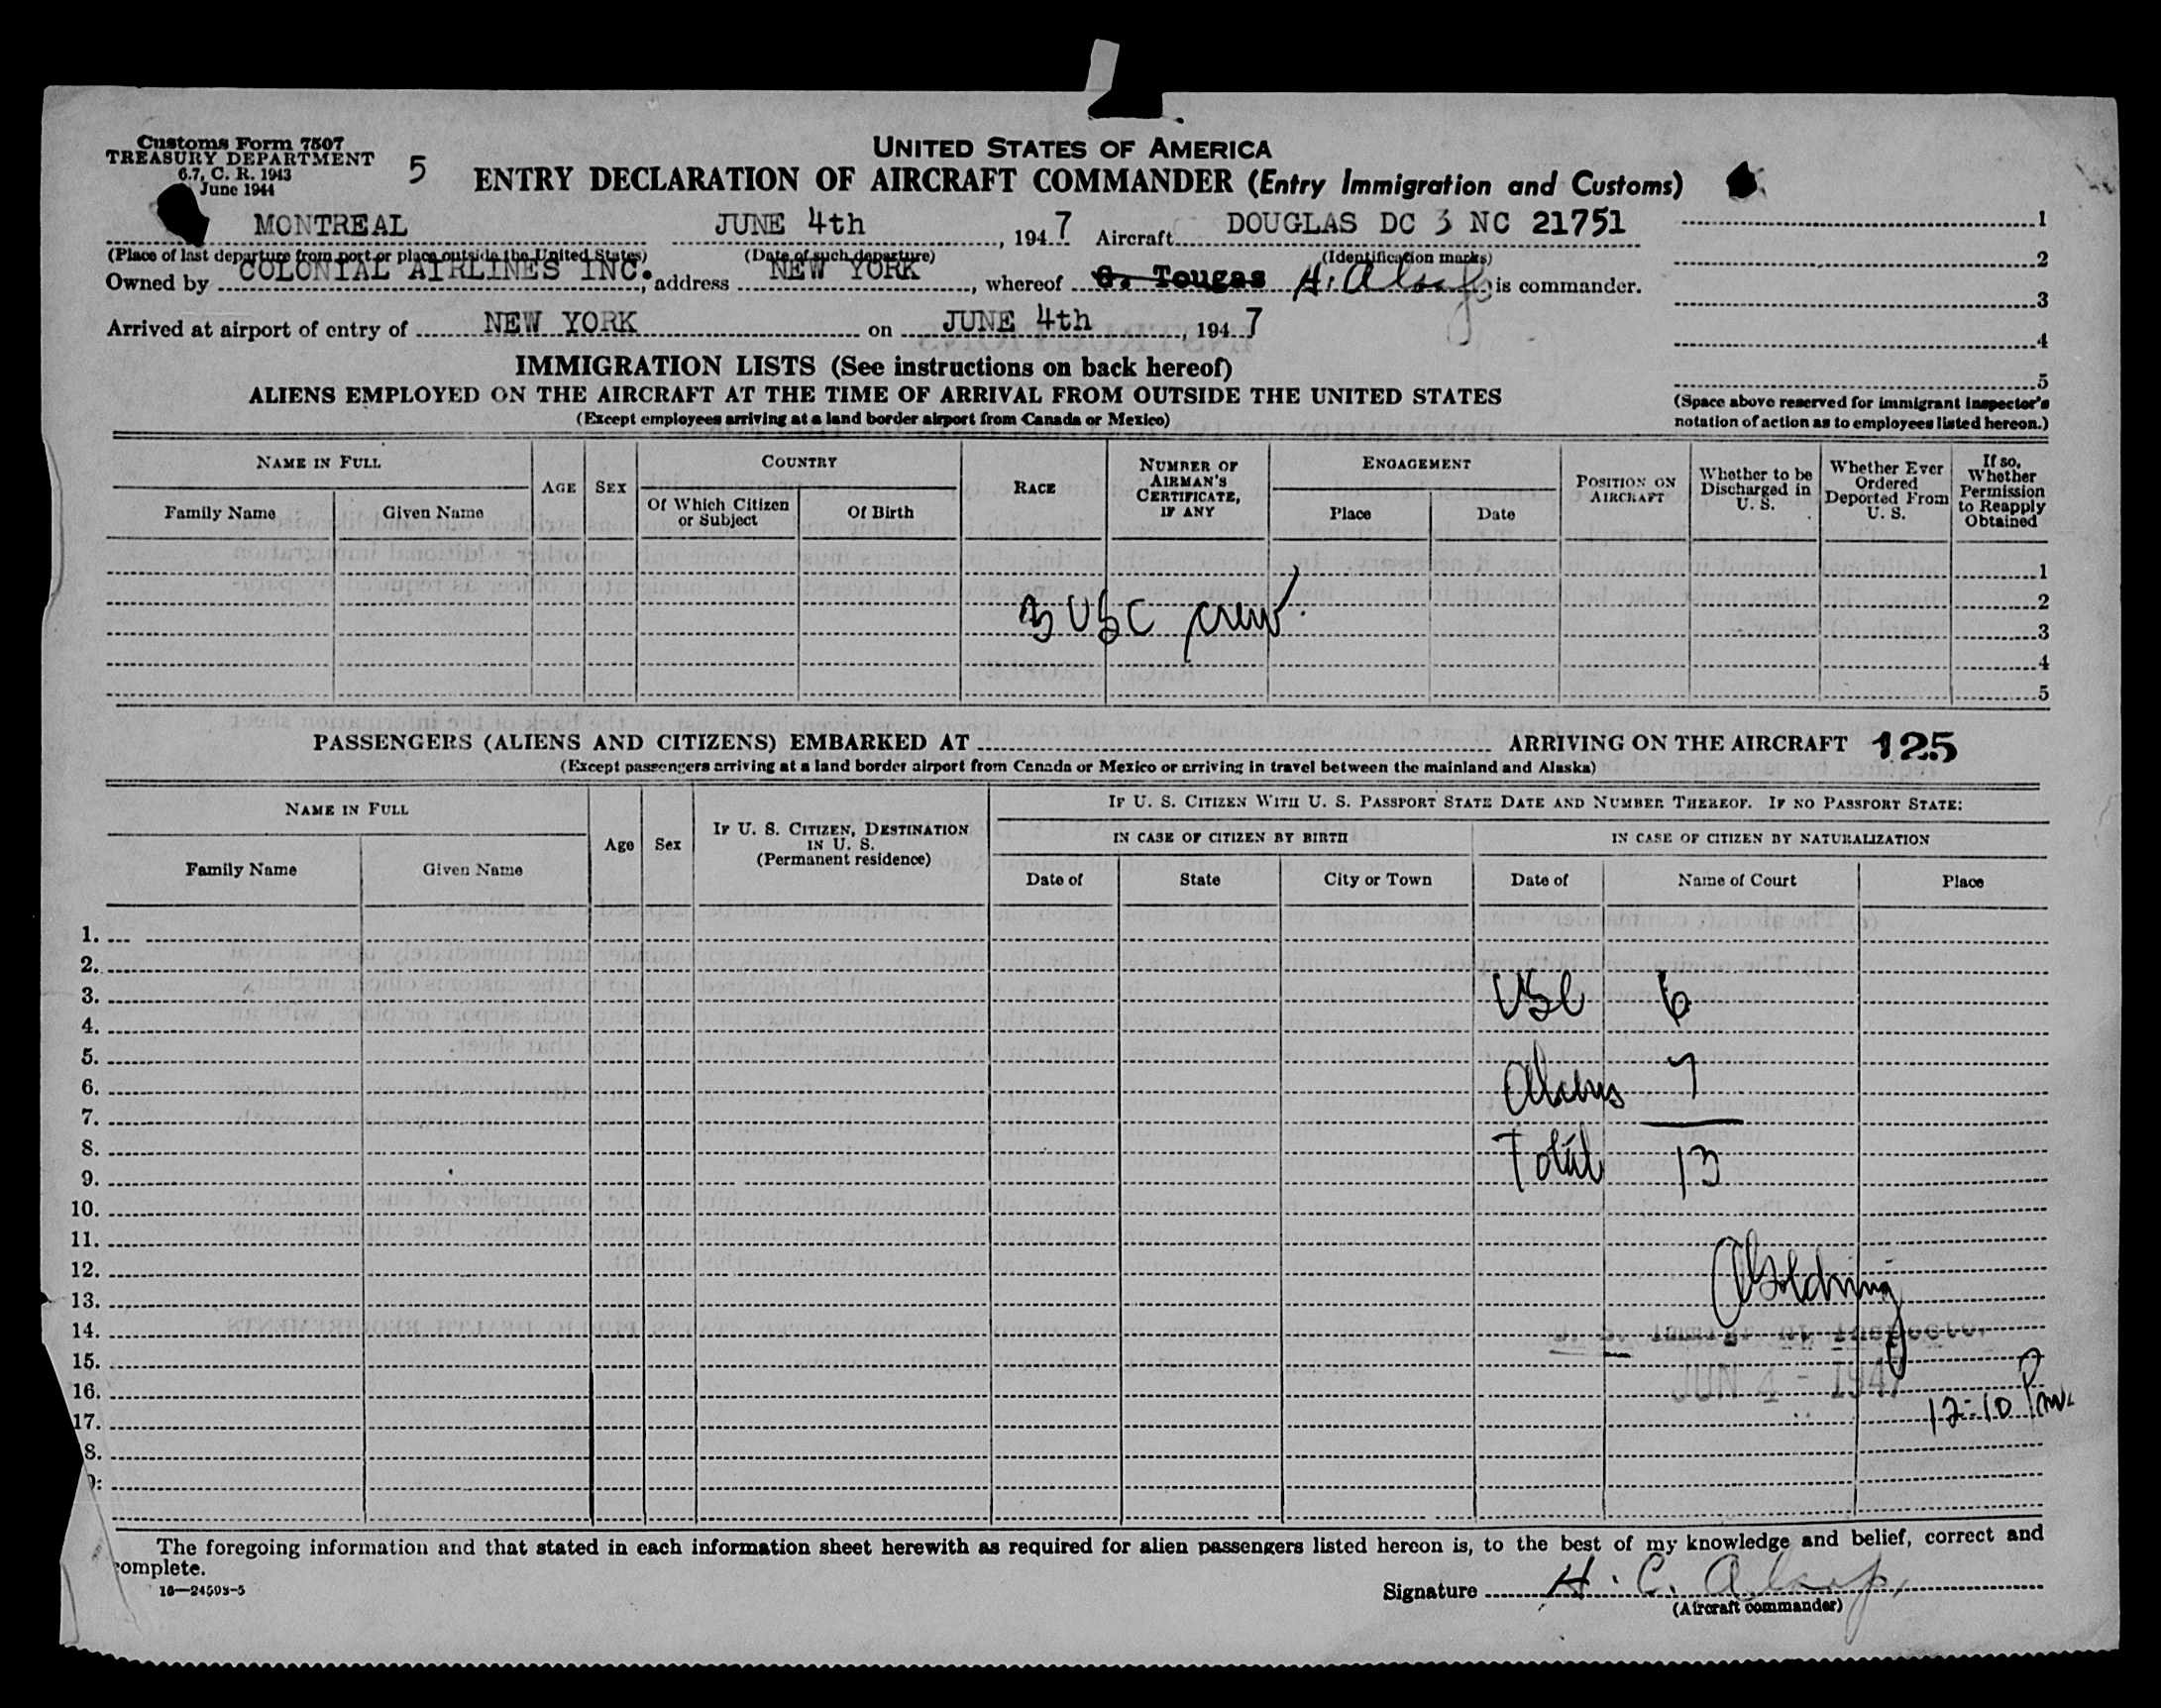 Customs Form 7507
TREASURY DEPARTMENT
6.7, C. R. 1943
June 1944
5
UNITED STATES OF AMERICA
ENTRY DECLARATION OF AIRCRAFT COMMANDER (Entry Immigration and Customs)
MONTREAL JUNE 4th, 1947 Aircraft DOUGLAS DC 3 NC 21751
(Place of last departure from port or place outside the United States) (Date of such departure) (Identification marks)
Owned by COLONIAL AIRLINES INC., address NEW YORK, whereof G. Tougas H. Alsop is commander.
Arrived at airport of entry of NEW YORK on JUNE 4th, 1947
1
2
3
4
5
(Space above reserved for immigrant inspector's
notation of action as to employees listed hereon.)
IMMIGRATION LISTS (See instructions on back hereof)
ALIENS EMPLOYED ON THE AIRCRAFT AT THE TIME OF ARRIVAL FROM OUTSIDE THE UNITED STATES
(Except employees arriving at a land border airport from Canada or Mexico)
NAME IN FULL
Family Name
Given Name
AGE
SEX
COUNTRY
Of Which Citizen
or Subject
Of Birth
RACE
NUMBER OF
AIRMAN'S
CERTIFICATE,
IF ANY
ENGAGEMENT
Place
Date
POSITION ON
AIRCRAFT
Whether to be
Discharged in
U. S.
Whether Ever
Ordered
Deported From
U. S.
If so,
Whether
Permission
to Reapply
Obtained
1
2
3 USC crew
3
4
5
PASSENGERS (ALIENS AND CITIZENS) EMBARKED AT ARRIVING ON THE AIRCRAFT 125
(Except passengers arriving at a land border airport from Canada or Mexico or arriving in travel between the mainland and Alaska)
NAME IN FULL
Family Name
Given Name
Age
Sex
IF U. S. CITIZEN, DESTINATION
IN U. S.
(Permanent residence)
IF U. S. CITIZEN WITH U. S. PASSPORT STATE DATE AND NUMBER THEREOF. IF NO PASSPORT STATE:
IN CASE OF CITIZEN BY BIRTH
Date of
State
City or Town
IN CASE OF CITIZEN BY NATURALIZATION
Date of
Name of Court
Place
1.
2.
3. USC 6
4.
5.
6. Aliens 7
7.
8. Total 13
9.
10.
11.
12.
13.
14. U. S. Immigrant Inspector
15.
16. JUN 4 - 1947
17. 12-10 Pm.
8.
The foregoing information and that stated in each information sheet herewith as required for alien passengers listed hereon is, to the best of my knowledge and belief, correct and
complete.
16—24598-5
Signature H. C. Alsop
(Aircraft commander)